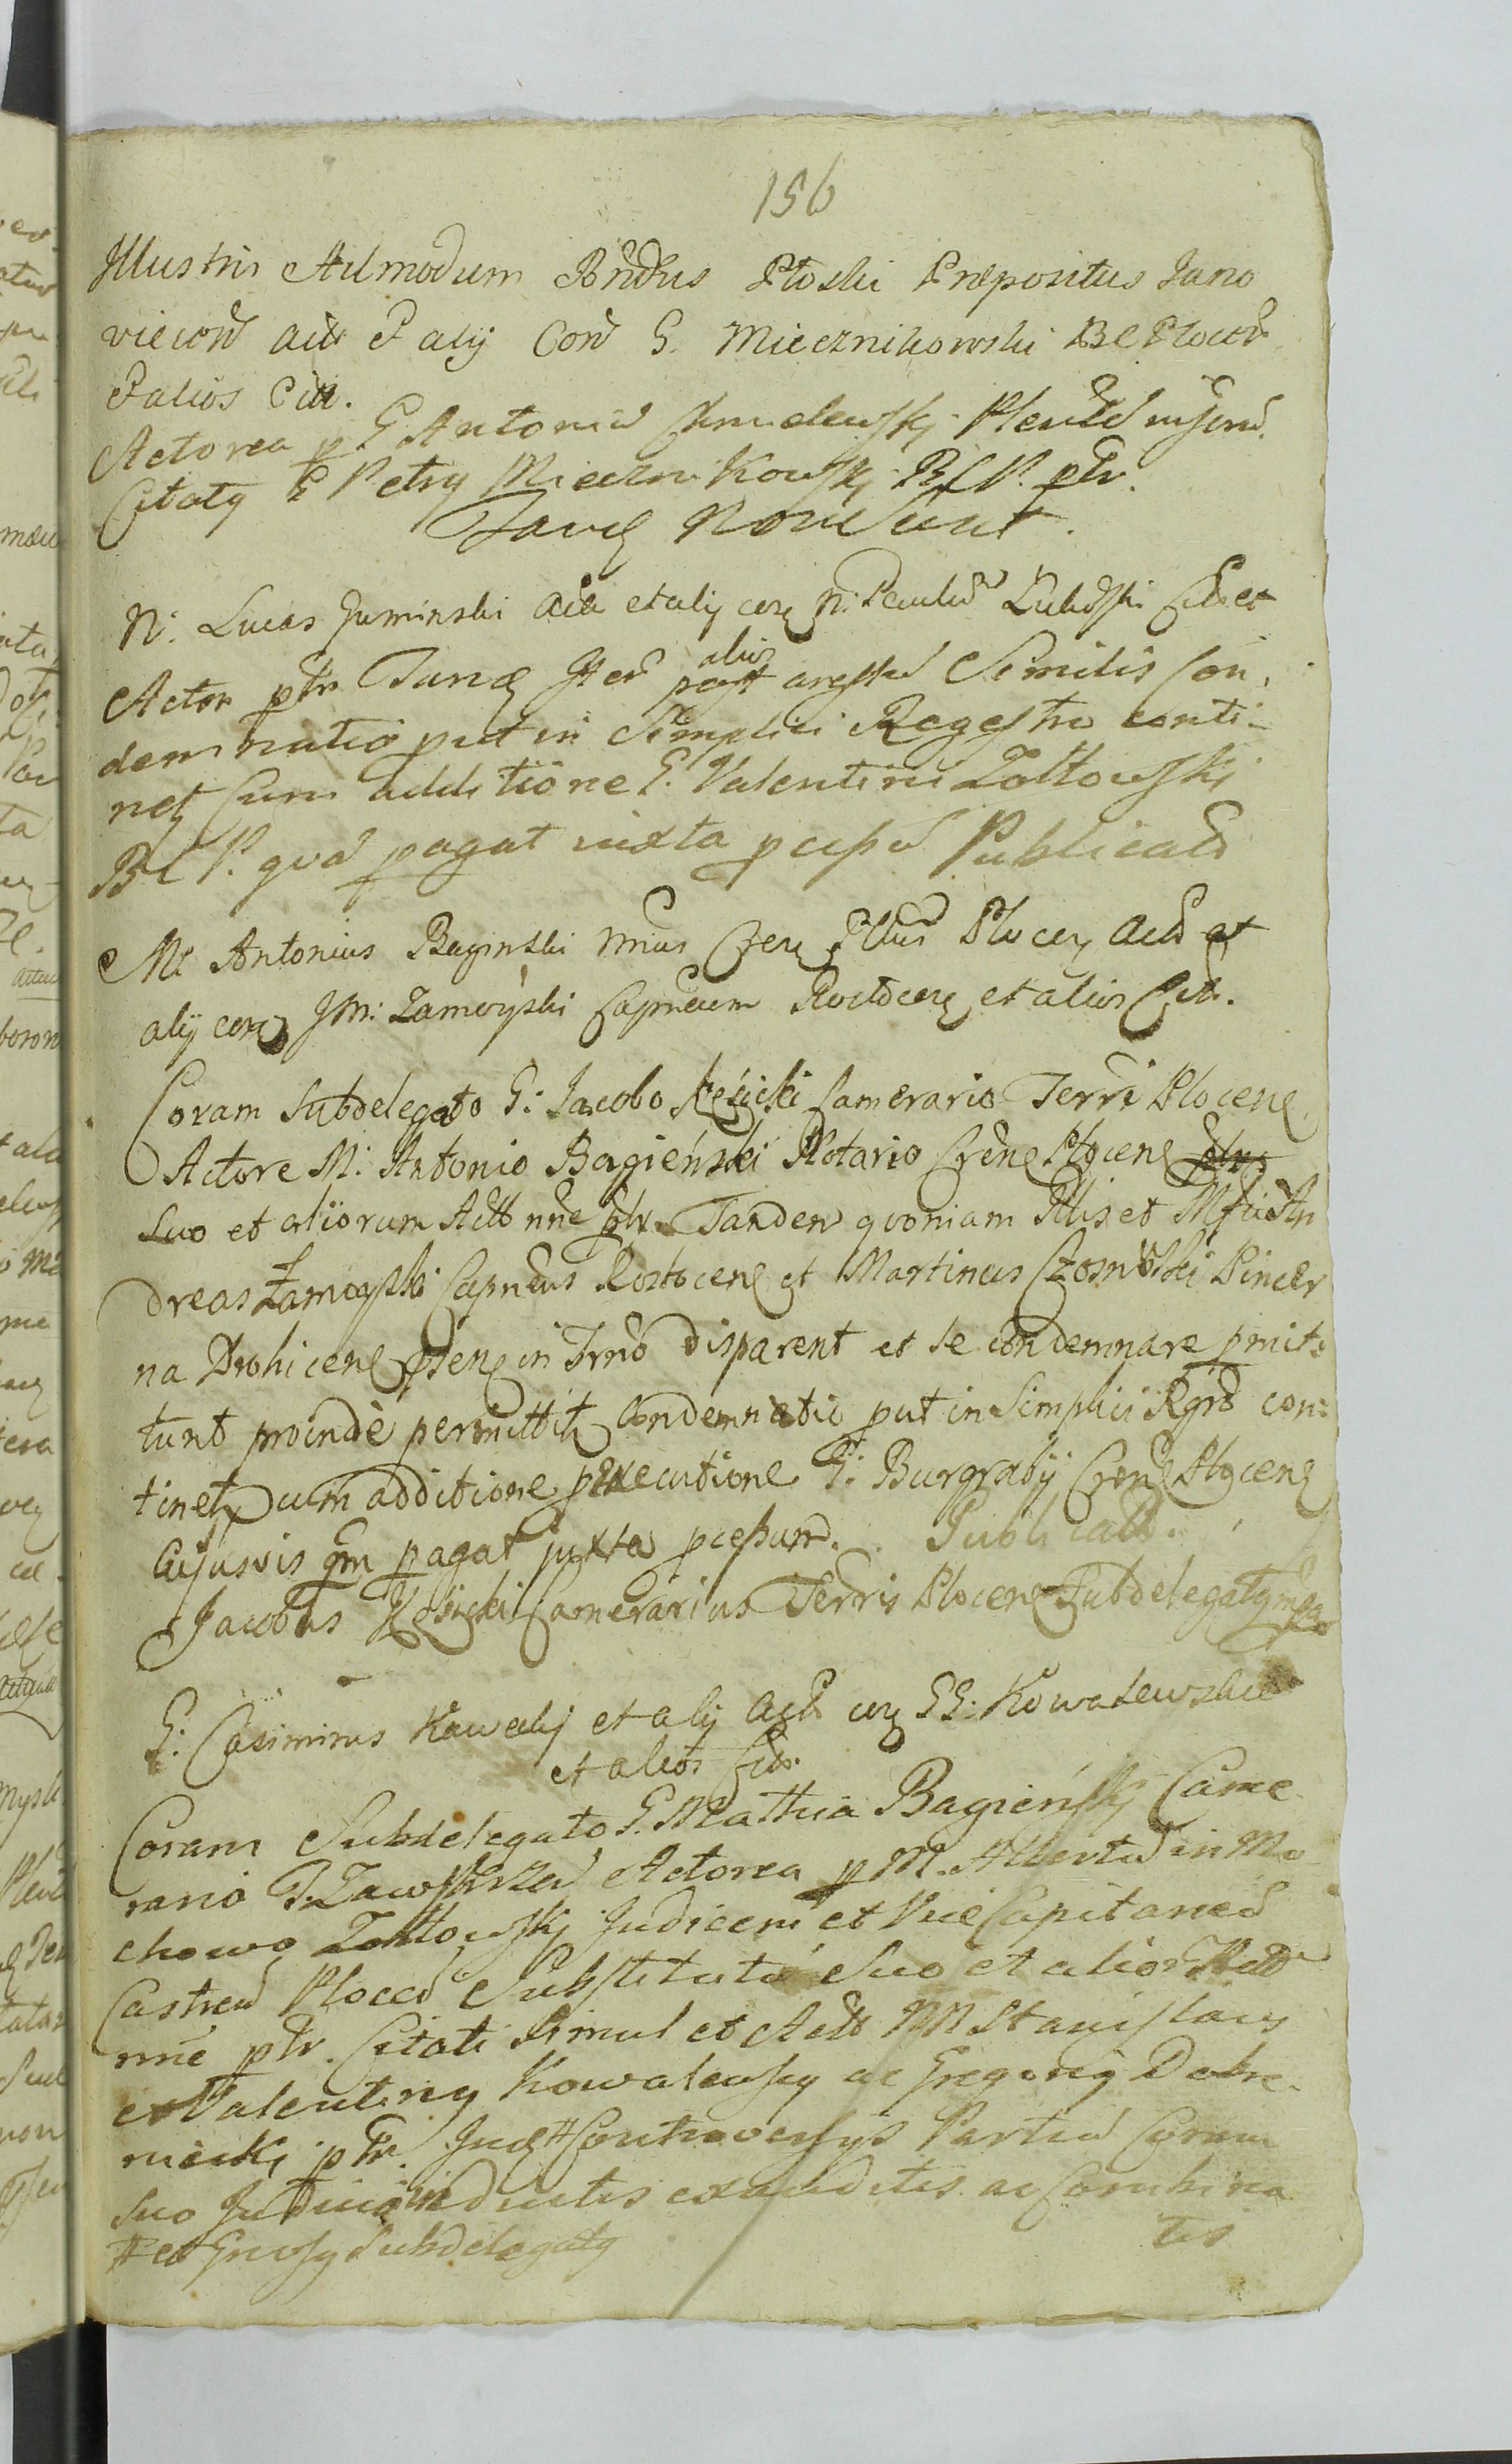 156
Illustris Admodum Rndus Płoski Præpositus Jano
viecen Act et alij Con G. Miecznikowski BCPlocen
et alios Citt.
Actorea p G. Antoniu Chmielewski Plentem
Citatg G Petrg Miecznikowski BCP. ptr.
Tandg Non sunt.
N: Lucas Guminski Actt et alij crg N: Paulum Citt et
Actor ptr Tandg Iter post alios Similis Con,
demnatio put in Simplici Regestro conti-
netg Cum additione G. Valentini Zołtowski
BCP. qvod pagat iuxta pcepu Publicatt
Mi Antonius Baginski Nrius Cren Plocen Actt et
alij crg Jm: Zamoyski Capneum Rostocen et alios Citt.
Coram Subdelegato G: Jacobo Kęsicki Camerario Terri Plocene
Actore M: Antonio Bagieński Notario Crene Plocene ptr
Suo et aliorum Actt nne ptr. Tandem qvoniam Illis et Mfci An
dreas Zamoyski Capneus Rostocene et Martinus Czosnowski Pincer
na Drohicene in Trno disparent et se condemnare pmit:
tunt proinde permittitg Condemnatio put in Simplici Rgro con:
tinetg cum additione pro executione G: Burgrabij Crene Plocene
Cujusvis qm pagat juxta pcepum. Publicatt.
Jacobus Kęsicki Camerarius Terris Plocene Subdelegatg mpa
G: Casimirus Kawecki et alij Actt crg GG: Kowalewskie
et alios Citt.
Coram Subdelegato G. Mathia Bagieński Came
rario T. Zawskrzen Actorea p M. Albertu in Mo
chowo Zołtowski Judicem et Vice Capitaneu
Castren Plocen Substitutu Suo et alior Actt
nne ptr. Citati Simul et Actt MM Stanislaus
et Valentinus Kowalewscy ac Gregorig Dobro
niecki ptr. Jud # Controversijs Partiu Coram
Suo Judicio inductis exauditis ac Combina
tis
# et Grosus Subdelegatg